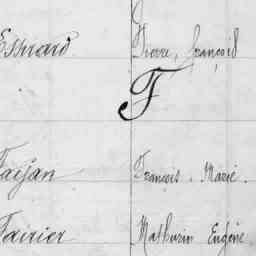 Esnard Pierre, François
F
Faisan François, Marie.
Fairier Mathurin Eugène